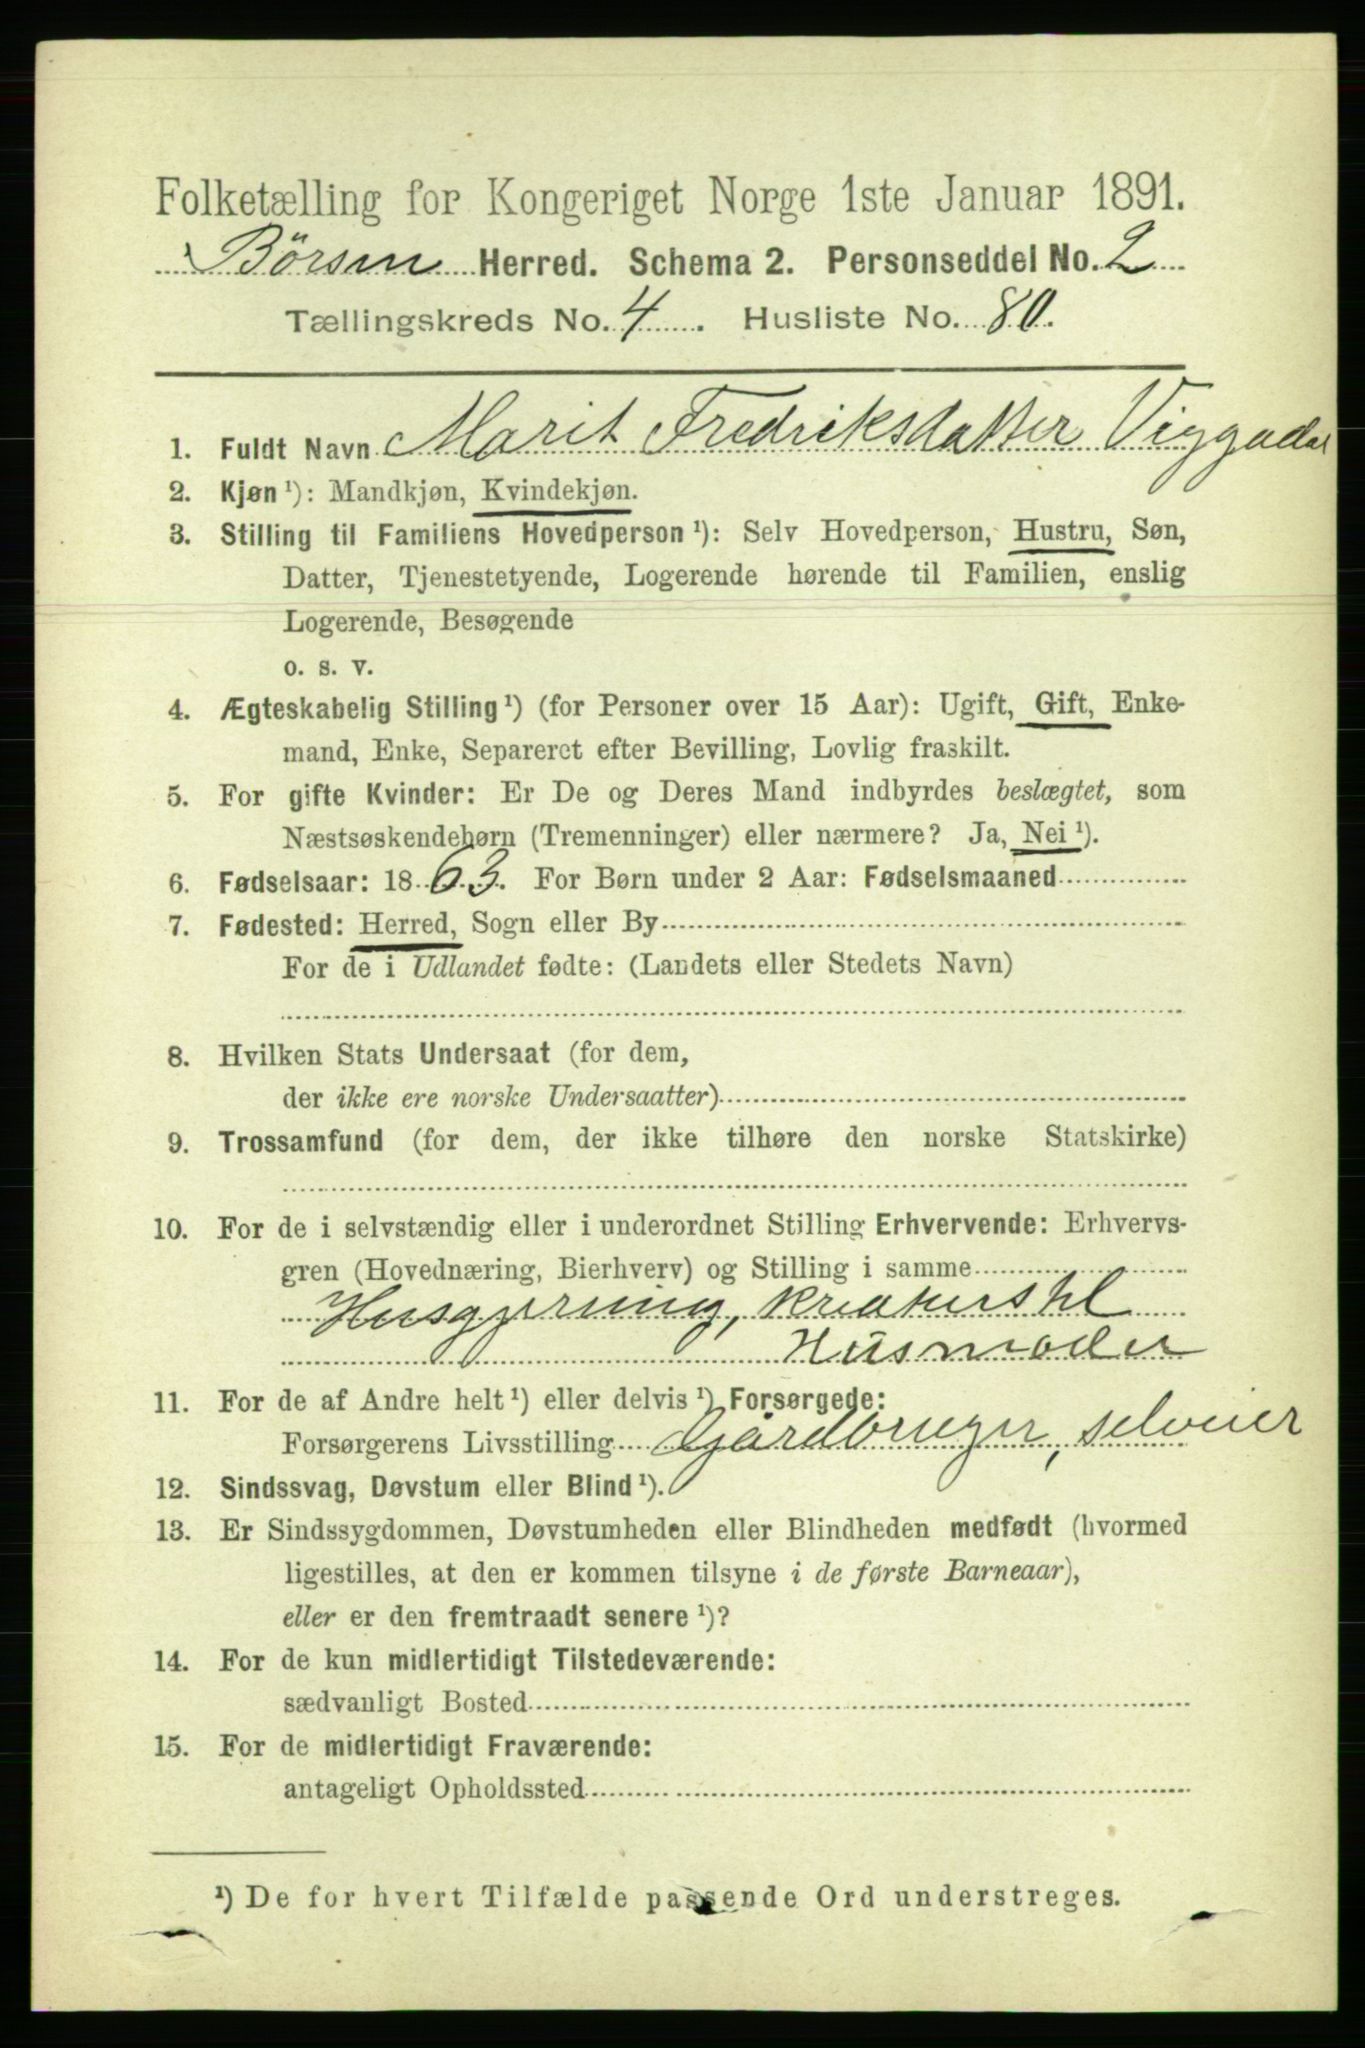 Folketælling for Kongeriget Norge 1ste Januar 1891.
Börsen Herred. Schema 2. Personseddel No. 2
Tællingskreds No. 4. Husliste No. 80.
1. Fuldt Navn Marit Fredriksdatter Viggadal
2. Kjøn ¹): Mandkjøn, Kvindekjøn.
3. Stilling til Familiens Hovedperson ¹): Selv Hovedperson, Hustru, Søn,
Datter, Tjenestetyende, Logerende hørende til Familien, enslig
Logerende, Besøgende
o. s. v.
4. Ægteskabelig Stilling ¹) (for Personer over 15 Aar): Ugift, Gift, Enke-
mand, Enke, Separeret efter Bevilling, Lovlig fraskilt.
5. For gifte Kvinder: Er De og Deres Mand indbyrdes beslægtet, som
Næstsøskendebørn (Tremenninger) eller nærmere? Ja, Nei ¹).
6. Fødselsaar: 1863. For Børn under 2 Aar: Fødselsmaaned
7. Fødested: Herred, Sogn eller By
For de i Udlandet fødte: (Landets eller Stedets Navn)
8. Hvilken Stats Undersaat (for dem,
der ikke ere norske Undersaatter)
9. Trossamfund (for dem, der ikke tilhøre den norske Statskirke)
10. For de i selvstændig eller i underordnet Stilling Erhvervende: Erhvervs-
gren (Hovednæring, Bierhverv) og Stilling i samme
Husgjerning, kreaturstel
Husmoder
11. For de af Andre helt ¹) eller delvis ¹) Forsørgede:
Forsørgerens Livsstilling Gårdbruger, selveier
12. Sindssvag, Døvstum eller Blind ¹).
13. Er Sindssygdommen, Døvstumheden eller Blindheden medfødt (hvormed
ligestilles, at den er kommen tilsyne i de første Barneaar),
eller er den fremtraadt senere ¹)?
14. For de kun midlertidigt Tilstedeværende:
sædvanligt Bosted
15. For de midlertidigt Fraværende:
antageligt Opholdssted
¹) De for hvert Tilfælde passende Ord understreges.